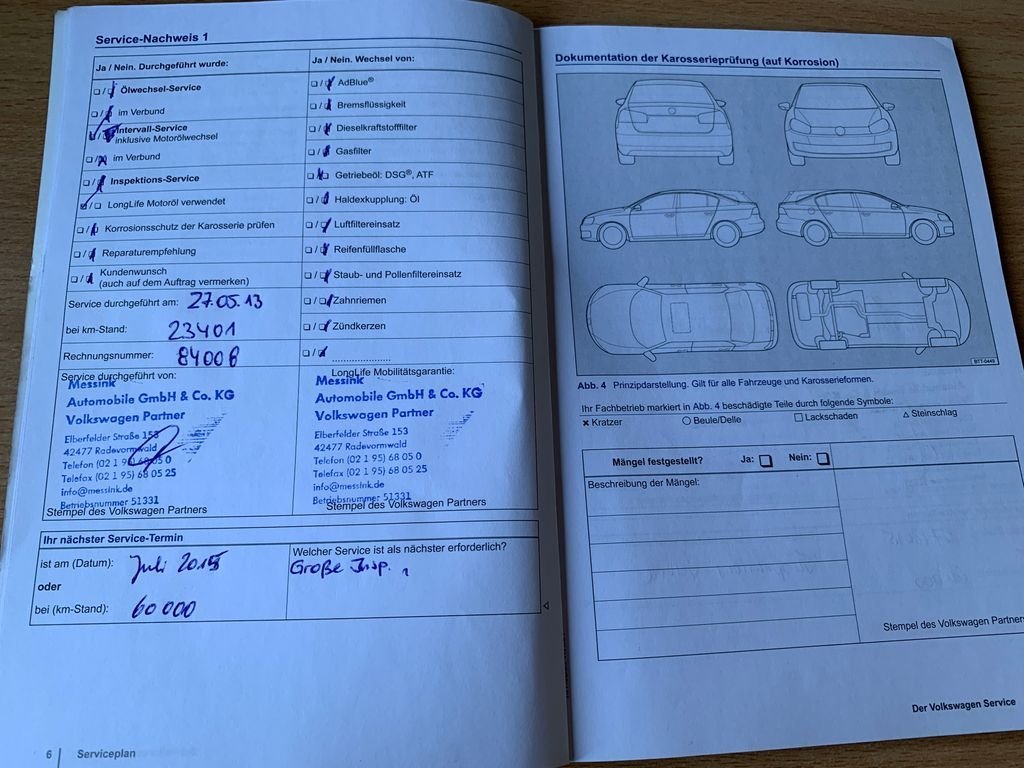 Service-Nachweis 1
Ja / Nein. Durchgeführt wurde:
Ölwechsel-Service
im Verbund
Intervall-Service
inklusive Motorölwechsel
im Verbund
Inspektions-Service
LongLife Motoröl verwendet
Korrosionsschutz der Karosserie prüfen
Reparaturempfehlung
Kundenwunsch
(auch auf dem Auftrag vermerken)
Service durchgeführt am: 27.05.13
bei km-Stand: 23401
Rechnungsnummer: 84006
Service durchgeführt von:
Messink
Automobile GmbH & Co. KG
Volkswagen Partner
Elberfelder Straße 153
42477 Radevormwald
Telefon (02 1 95) 68 05 0
Telefax (02 1 95) 68 05 25
info@messink.de
Betriebsnummer 51331
Stempel des Volkswagen Partners
Ja / Nein. Wechsel von:
AdBlue®
Bremsflüssigkeit
Dieselkraftstofffilter
Gasfilter
Getriebeöl: DSG®, ATF
Haldexkupplung: Öl
Luftfiltereinsatz
Reifenfüllflasche
Staub- und Pollenfiltereinsatz
Zahnriemen
Zündkerzen
LongLife Mobilitätsgarantie:
Messink
Automobile GmbH & Co. KG
Volkswagen Partner
Elberfelder Straße 153
42477 Radevormwald
Telefon (02 1 95) 68 05 0
Telefax (02 1 95) 68 05 25
info@messink.de
Betriebsnummer 51331
Stempel des Volkswagen Partners
Ihr nächster Service-Termin
ist am (Datum): Juli 2015
oder
bei (km-Stand): 60 000
Welcher Service ist als nächster erforderlich?
Große Insp.
6 | Serviceplan
Dokumentation der Karosserieprüfung (auf Korrosion)
BTT-0449
Abb. 4 Prinzipdarstellung. Gilt für alle Fahrzeuge und Karosserieformen.
Ihr Fachbetrieb markiert in Abb. 4 beschädigte Teile durch folgende Symbole:
× Kratzer ○ Beule/Delle □ Lackschaden △ Steinschlag
Mängel festgestellt? Ja: □ Nein: □
Beschreibung der Mängel:
Stempel des Volkswagen Partners
Der Volkswagen Service